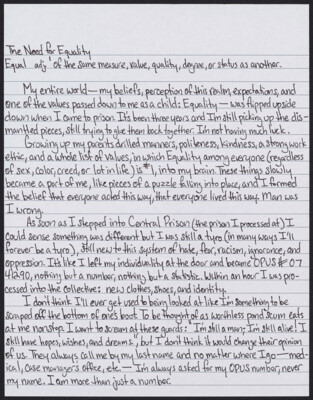 The Need for Equality
Equal adj. 1 of the same measure, value, quality, degree, or status as another.
My entire world — my beliefs, perception of this realm, expectations, and
one of the values passed down to me as a child: Equality — was flipped upside
down when I came to prison. It's been three years and I'm still picking up the dis-
mantled pieces, still trying to glue them back together. I'm not having much luck.
Growing up my parents drilled manners, politeness, kindness, a strong work
ethic, and a whole list of values, in which Equality among everyone (regardless
of sex, color, creed, or lot in life) is #1, into my brain. These things slowly
became a part of me, like pieces of a puzzle falling into place, and I formed
the belief that everyone acted this way, that everyone lived this way. Man was
I wrong.
As soon as I stepped into Central Prison (the prison I processed at) I
could sense something was different but I was still a tyro (in many ways I'll
forever be a tyro), still new to this system of hate, fear, racism, ignorance, and
oppression. It's like I left my individuality at the door and became OPUS # 07
4290, nothing but a number, nothing but a statistic. Within an hour I was pro-
cessed into the collective: new clothes, shoes, and identity.
I don't think I'll ever get used to being looked at like I'm something to be
scraped off the bottom of one's boot. To be thought of as worthless pond scum eats
at me nonstop. I want to scream at these guards: 'I'm still a man; I'm still alive! I
still have hopes, wishes, and dreams', but I don't think it would change their opinion
of us. They always call me by my last name and no matter where I go — med-
ical, case manager's office, etc. — I'm always asked for my OPUS number, never
my name. I am more than just a number.